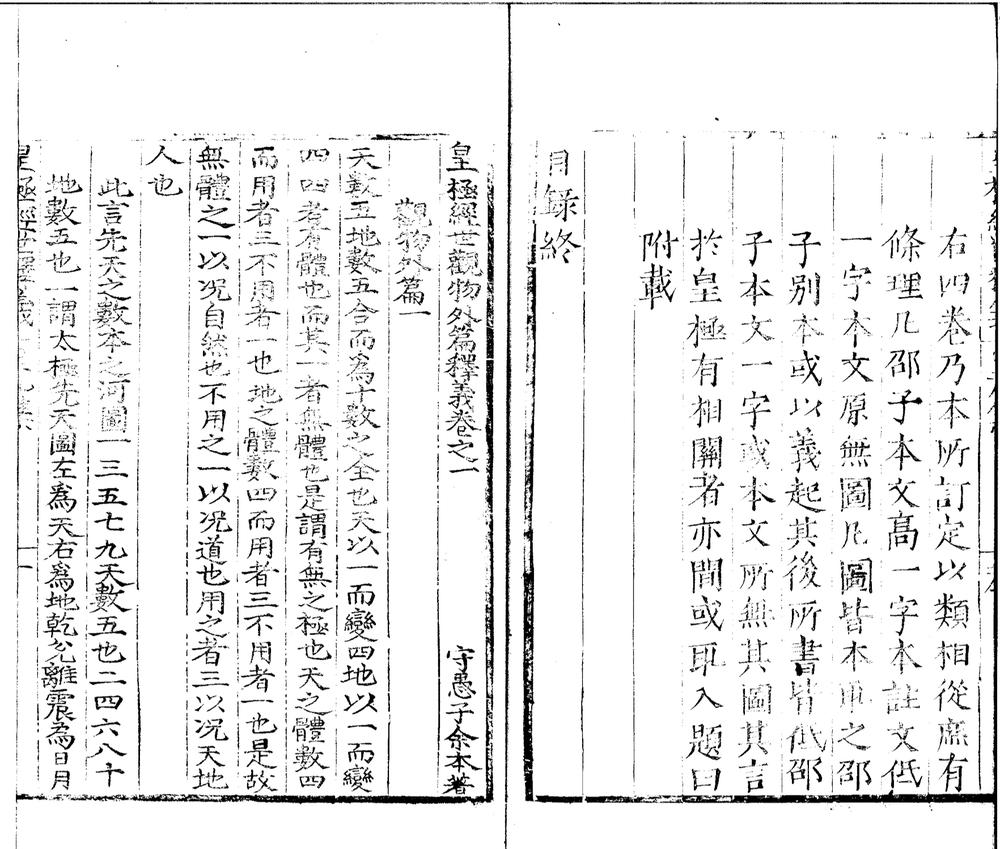 右四卷乃本所訂定以類相從庶有
條理凡邵子本文高一字本註文低
一字本文原無圖凡圖皆本
之邵
子別本或以義起其後所書皆低邵
子本文一字或本文所無其圖其言
於皇極有相關者亦間或取入題曰
附載
目錄終
皇極經世觀物外篇釋義卷之一 守愚子余本著
觀物外篇一
天數五地數五合而爲十數之全也天以一而變四地以一而變
四四者有體也而其一者無體也是謂有無之極也天之體數四
而用者三不用者一也地之體數四而用者三不用者一也是故
無體之一以况自然也不用之一以况道也用之者三以况天地
人也
此言先天之數本之河圖一三五七九天數五也二四六八十
地數五也一謂太極先天圖左爲天右爲地乾兌離震為日月